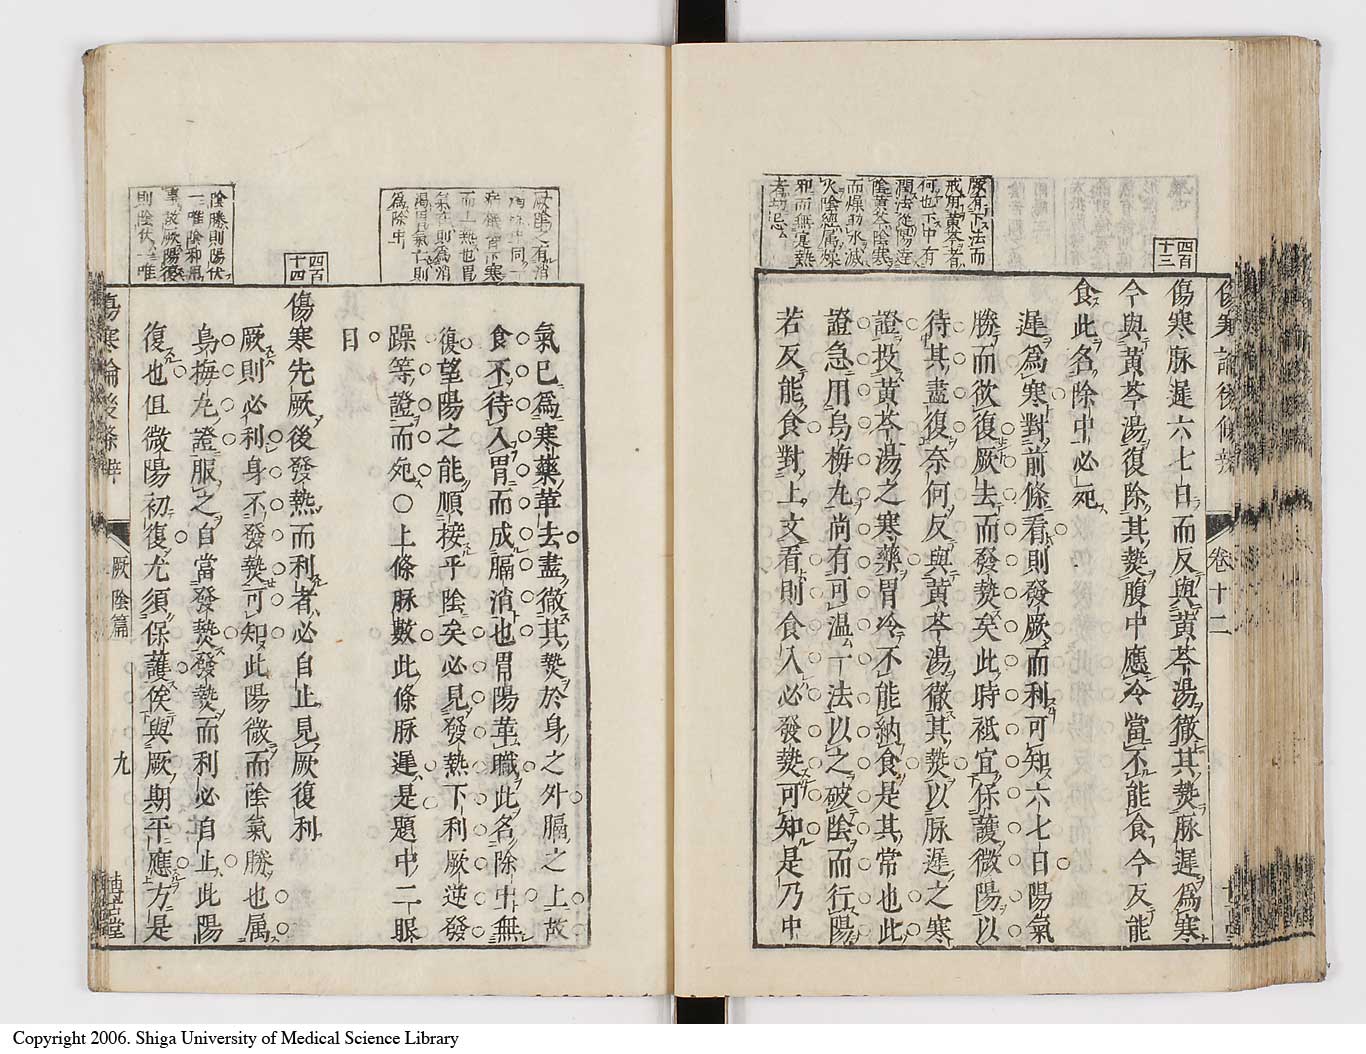 厥有下法而
戒用黃芩者
何也下中有
潤法從陽逆
陰黃芩從陰寒
而燥動水減
火陰總屬燥
邪而無寔熱
者切忌
四百
十三
傷寒論後條辨
卷十二
傷寒脉遲六七日而反與黃芩湯徹其熱脉遲爲寒
今與黃芩湯復除其熱腹中應冷當不能食今反能
食此名除中必死
遲爲寒對前條看則發厥而利可知六七日陽氣
勝而欲復厥去而發熱矣此時祗宜保護微陽以
待其盡復奈何反與黃芩湯徹其熱以脉遲之寒
證投黃芩湯之寒藥胃冷不能納食是其常也此
證急用烏梅丸尚有可溫一法以之破陰而行陽
若反能食對上文看則食入必發熱可知是乃中
氣已爲寒藥革去盡徹其熱於身之外膈之上故
食不待入胃而成膈消也胃陽革職此名除中無
復望陽之能順接乎陰矣必見發熱下利厥逆發
躁等證而死〇上條脉數此條脉遲是題中二眼
目
四百
十四
傷寒先厥後發熱而利者必自止見厥復利
厥則必利身不發熱可知此陽微而陰氣勝也属
烏梅丸證服之自當發熱發熱而利必自止此陽
復也但微陽初復尤須保護俟與厥期平應方是
陰勝則陽伏
一唯陰邪用
事故厥陽復
則陰伏一唯
傷寒論後條辨
厥陰篇
九
博古堂
Copyright 2006. Shiga University of Medical Science Library